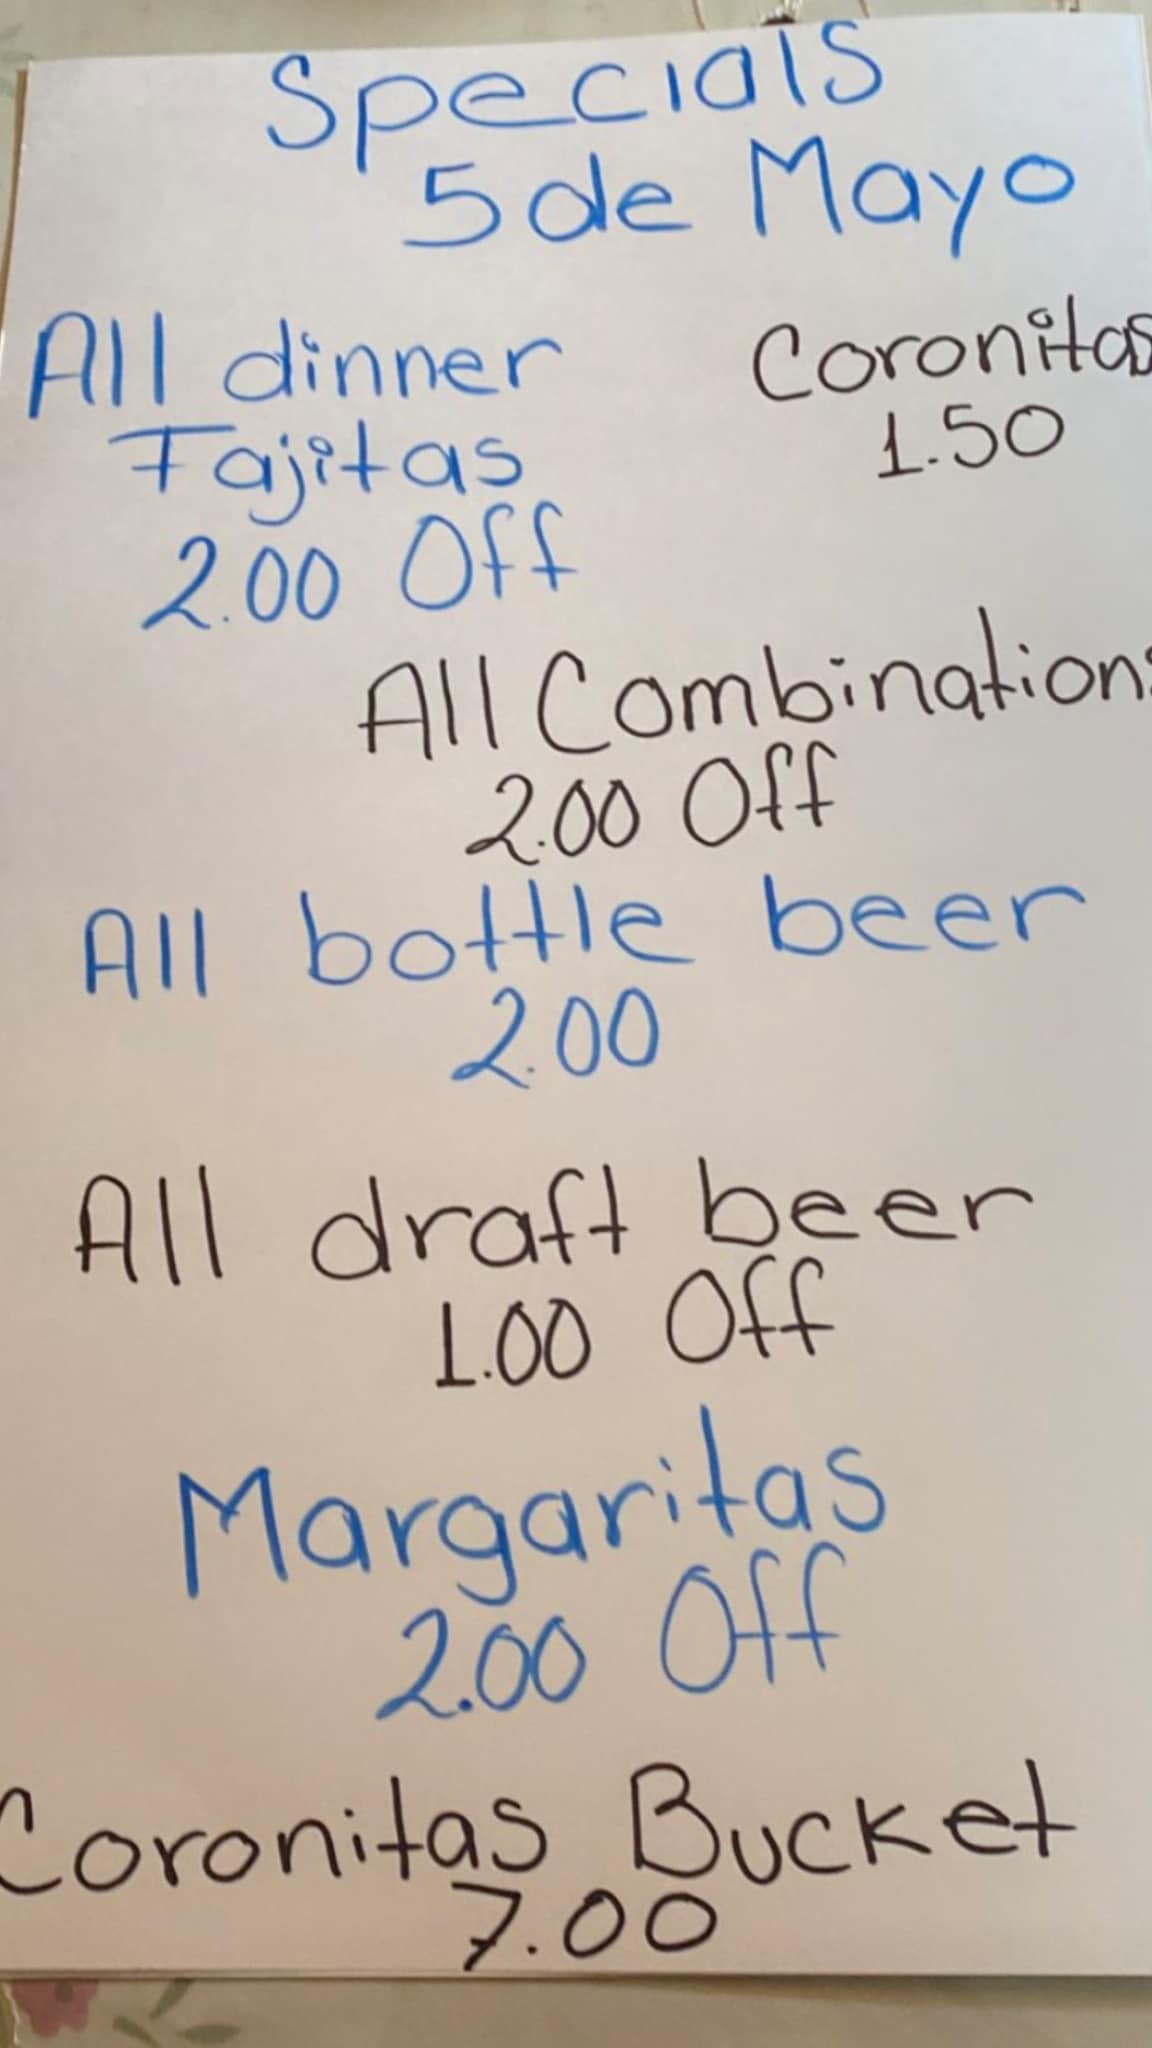 Specials
5 de Mayo
All dinner
Fajitas
2.00 Off
Coronitas
1.50
All Combinations
2.00 Off
All bottle beer
2.00
All draft beer
1.00 Off
Margaritas
2.00 Off
Coronitas Bucket
7.00